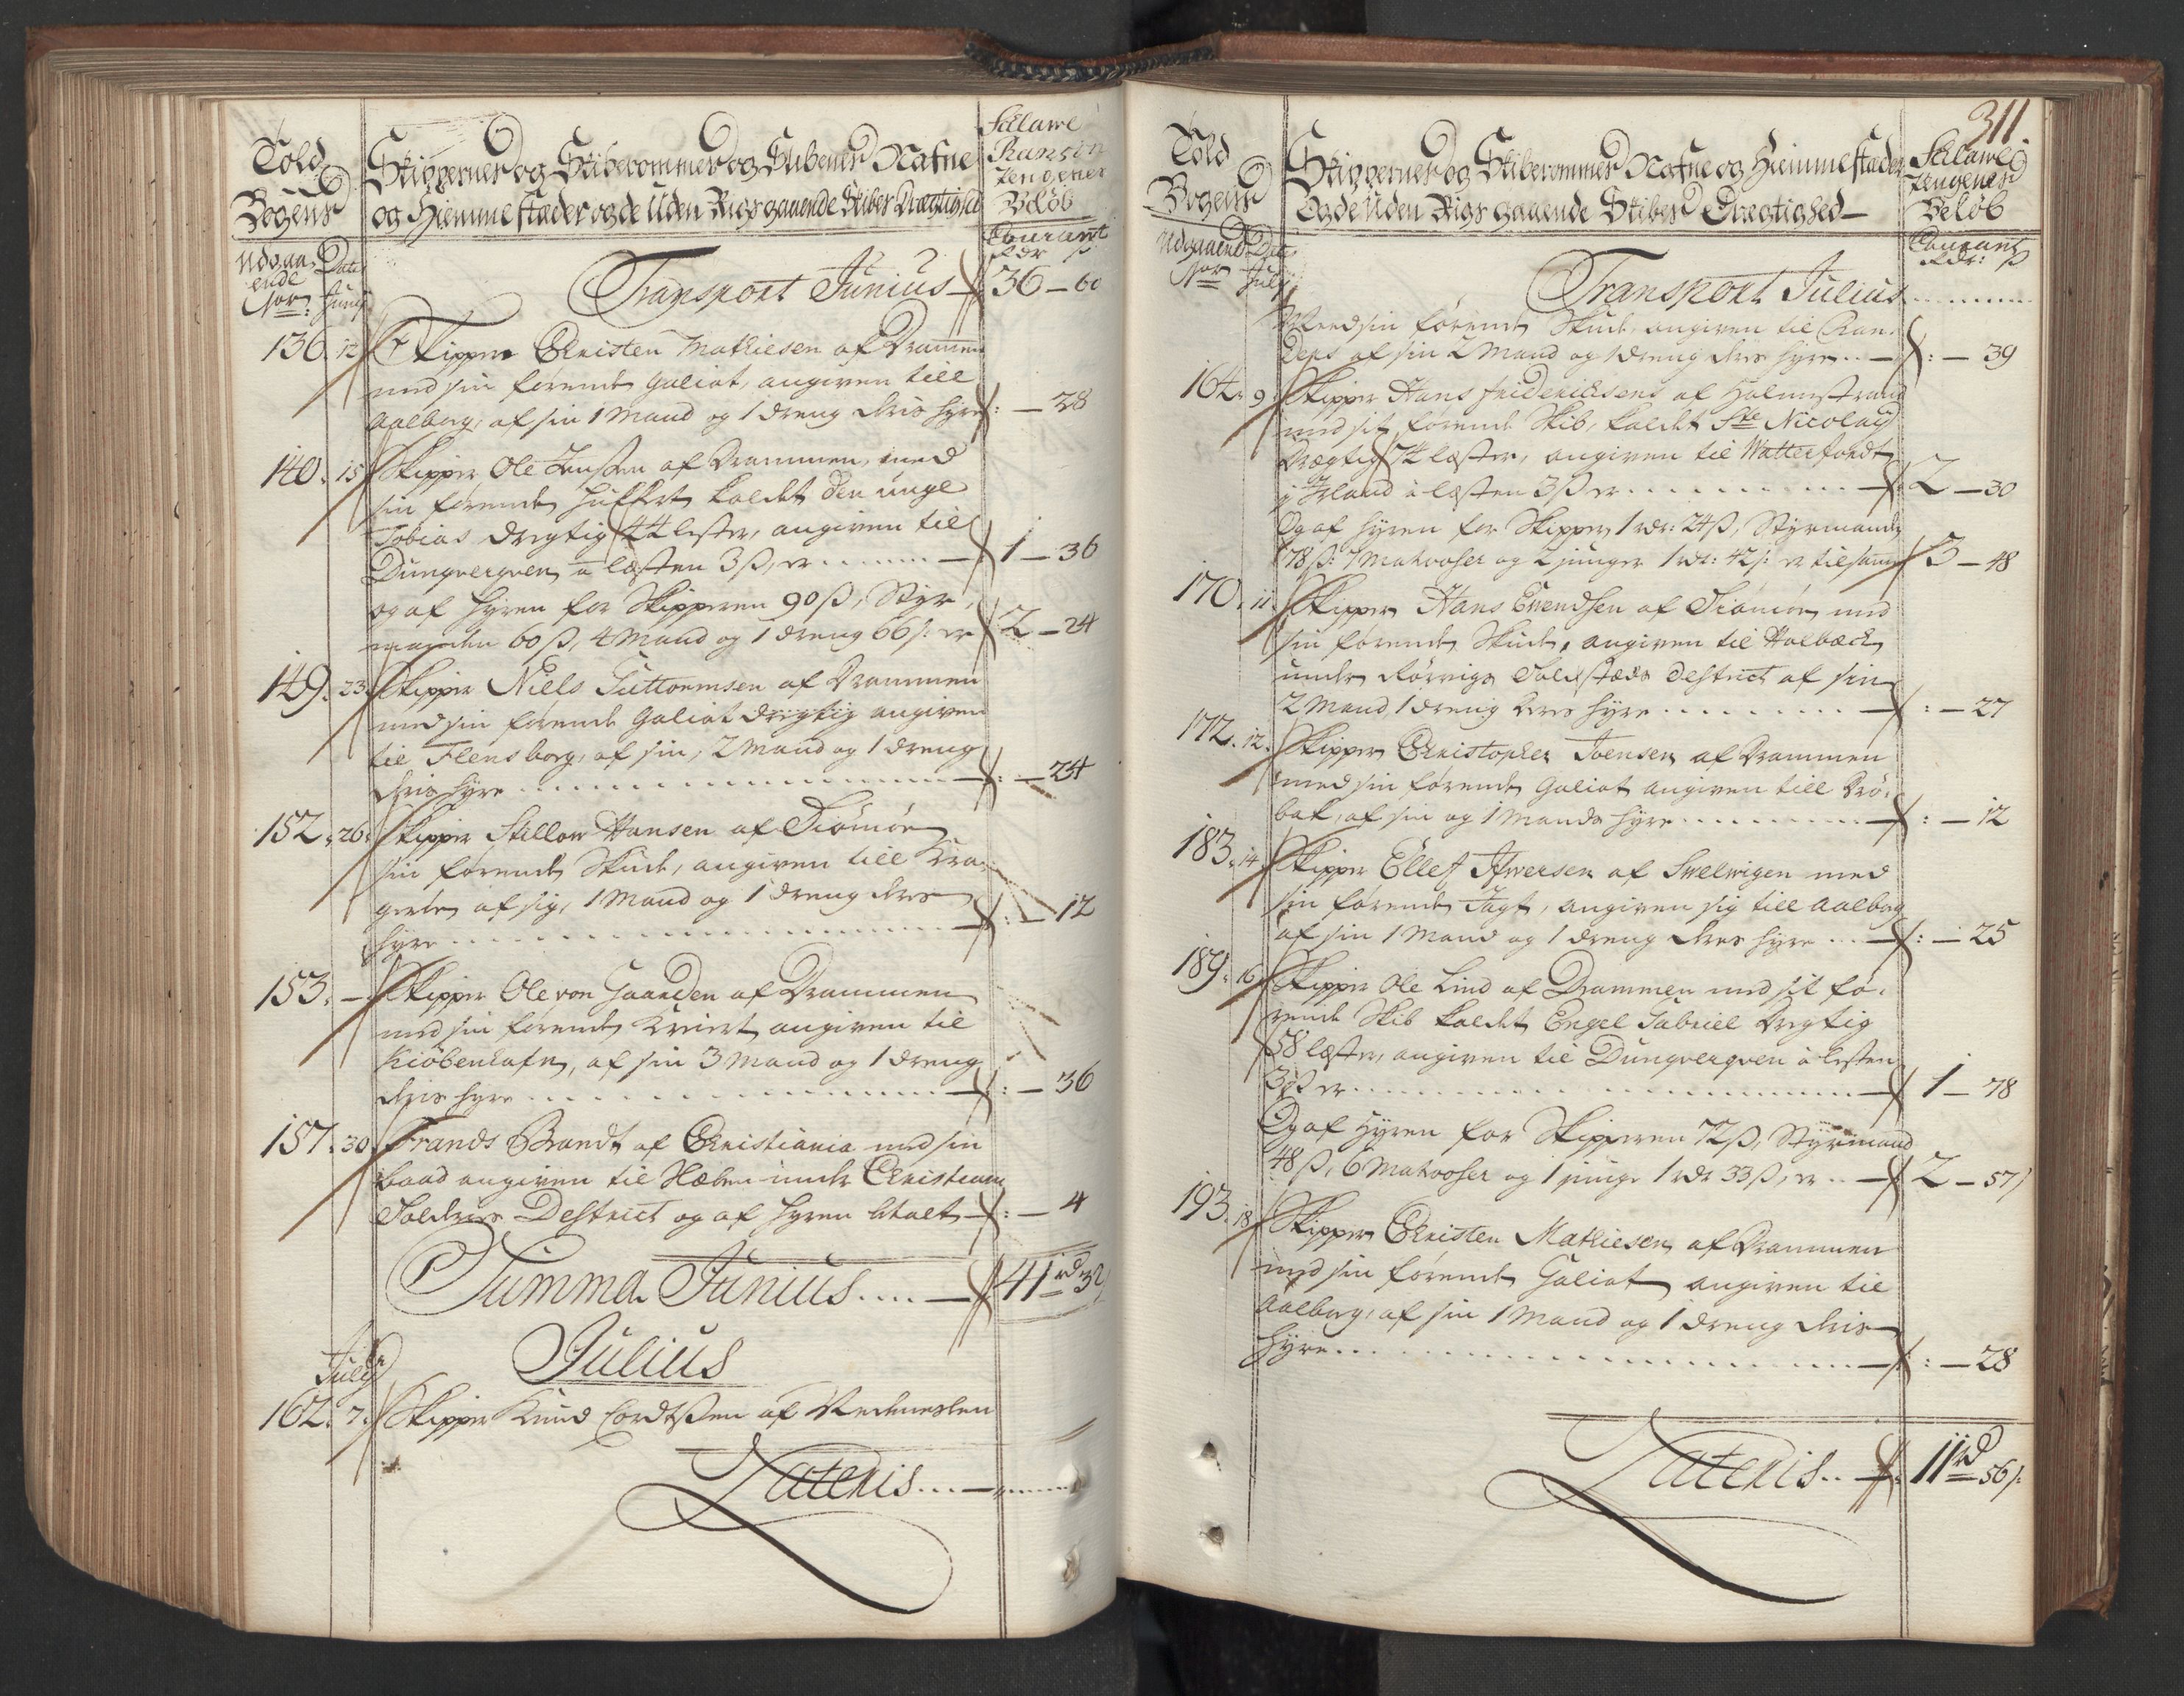 Told
Bogens
Skippernes og Skiberommes og Skibenes Nafne
og Hiemmestæder og de Uden Rigs gaaende Skibes Drægtighed
Sclawe
Ranson
Pengenes
Beløb
Udgaa-
ende
No: Juny
Dato
Courant
Rdr ß
Transport Junius 36 – 60
136. 12 Skipper Christen Mathiesen af Drammen
med sin førende Galiot, angiven till
Aalborg, af sin 1 Mand og 1 dreng deris hyre : – 28
140. 15 Skipper Ole Jenssen af Drammen, med
sin førende Hukkert kaldet Den unge
Tobias drægtig 44 lester, angiven til
Dunqverqven a læsten 3 ß, er 1 – 36
og af Hyren for Skipperen 90 ß, Styr-
manden 60 ß, 4 Mand og 1 dreng 66 ß er 2 – 24
149. 23 Skipper Niels Guttormsen af Drammen
med sin førende Galiot drægtig angiven
til Flensborg, af sin, 2 Mand og 1 dreng
deris Hyre : – 24
152. 26. Skipper Hansen af Tiømøe
sin førende Skude, angiven till Kra-
gerøe af sig, 1 Mand og 1 dreng deres
hyre : – 12
153. – Skipper Ole von Haarden af Drammen
med sin førende Kreiert angiven til
Kiøbenhafn, af sin 3 Mand og 1 dreng
deris hyre : – 36
157. 30 Frands Brandt af Christiania med sin
baad angiven til under Christiania
Tolderes Destrict og af hyren betalt : – 4
Summa Junius 41 rd 32
July
Julius
162. 7. Skipper Knud Cordtssen af Nedenæslen
Lateris
311
Told
Bogens
Skippernes og Skiberommes Nafne og Hiemmestæder
Og de Uden Rigs gaaende Skibes Drægtighed
Sclawe
Pengenes
Beløb
Udgaaende
No July
Dato
Courant
Rdr: ß
Transport Julius
Med sin førende Skude, angiven til Ran-
ders af sin 2 Mand og 1 dreng deres hyre : – 39
164. 9 Skipper Hans Friderichsens af Holmestrand
med sit førende Skib, kaldet Ste Nicolay
Drægtig 74 læster, angiven til Watterfordt
i Irland a læsten 3 ß er 2 – 30
Og af hyren for Skipper 1 rdr: 24 ß, Styrmanden
78 ß: 7 Matrooser og 2 junger 1 rdr: 42 ß: er tilsamen 3 – 48
170. 11 Skipper Hans Evendsen af Tiømøe med
sin førende Skude, angiven til Holbæck
under Rørvigs Toldstæds destrict af sin
2 Mand, 1 dreng deres hyre : – 27
172. 12. Skipper Christopher Joensen af Drammen
med sin førende Galiot angiven till Drø-
bak, af sin og 1 Mands hyre : – 12
183. 14 Skipper Ellef Iffwersen af Swelwigen med
sin førende Jagt, angiven sig till Aalborg
af sin 1 Mand og 1 dreng deres hyre : – 25
189. 16 Skipper Ole Lind af Drammen med sit fø-
rende Skib kaldet Engel Gabriel Drægtig
58 læster, angiven til Dunqverqven a lesten
3 ß er 1 – 78
Og af hyren for Skipperen 72 ß, Styrmand
48 ß, 6 Matrooser og 1 junge 1 rdr 33 ß, er 2 – 57
193. 18 Skipper Christen Mathiesen af Drammen
med sin førende Galiot angiven til
Aalborg, af sin 1 Mand og 1 dreng deris
Hyre : – 28
Lateris 11 rd 56 ß: